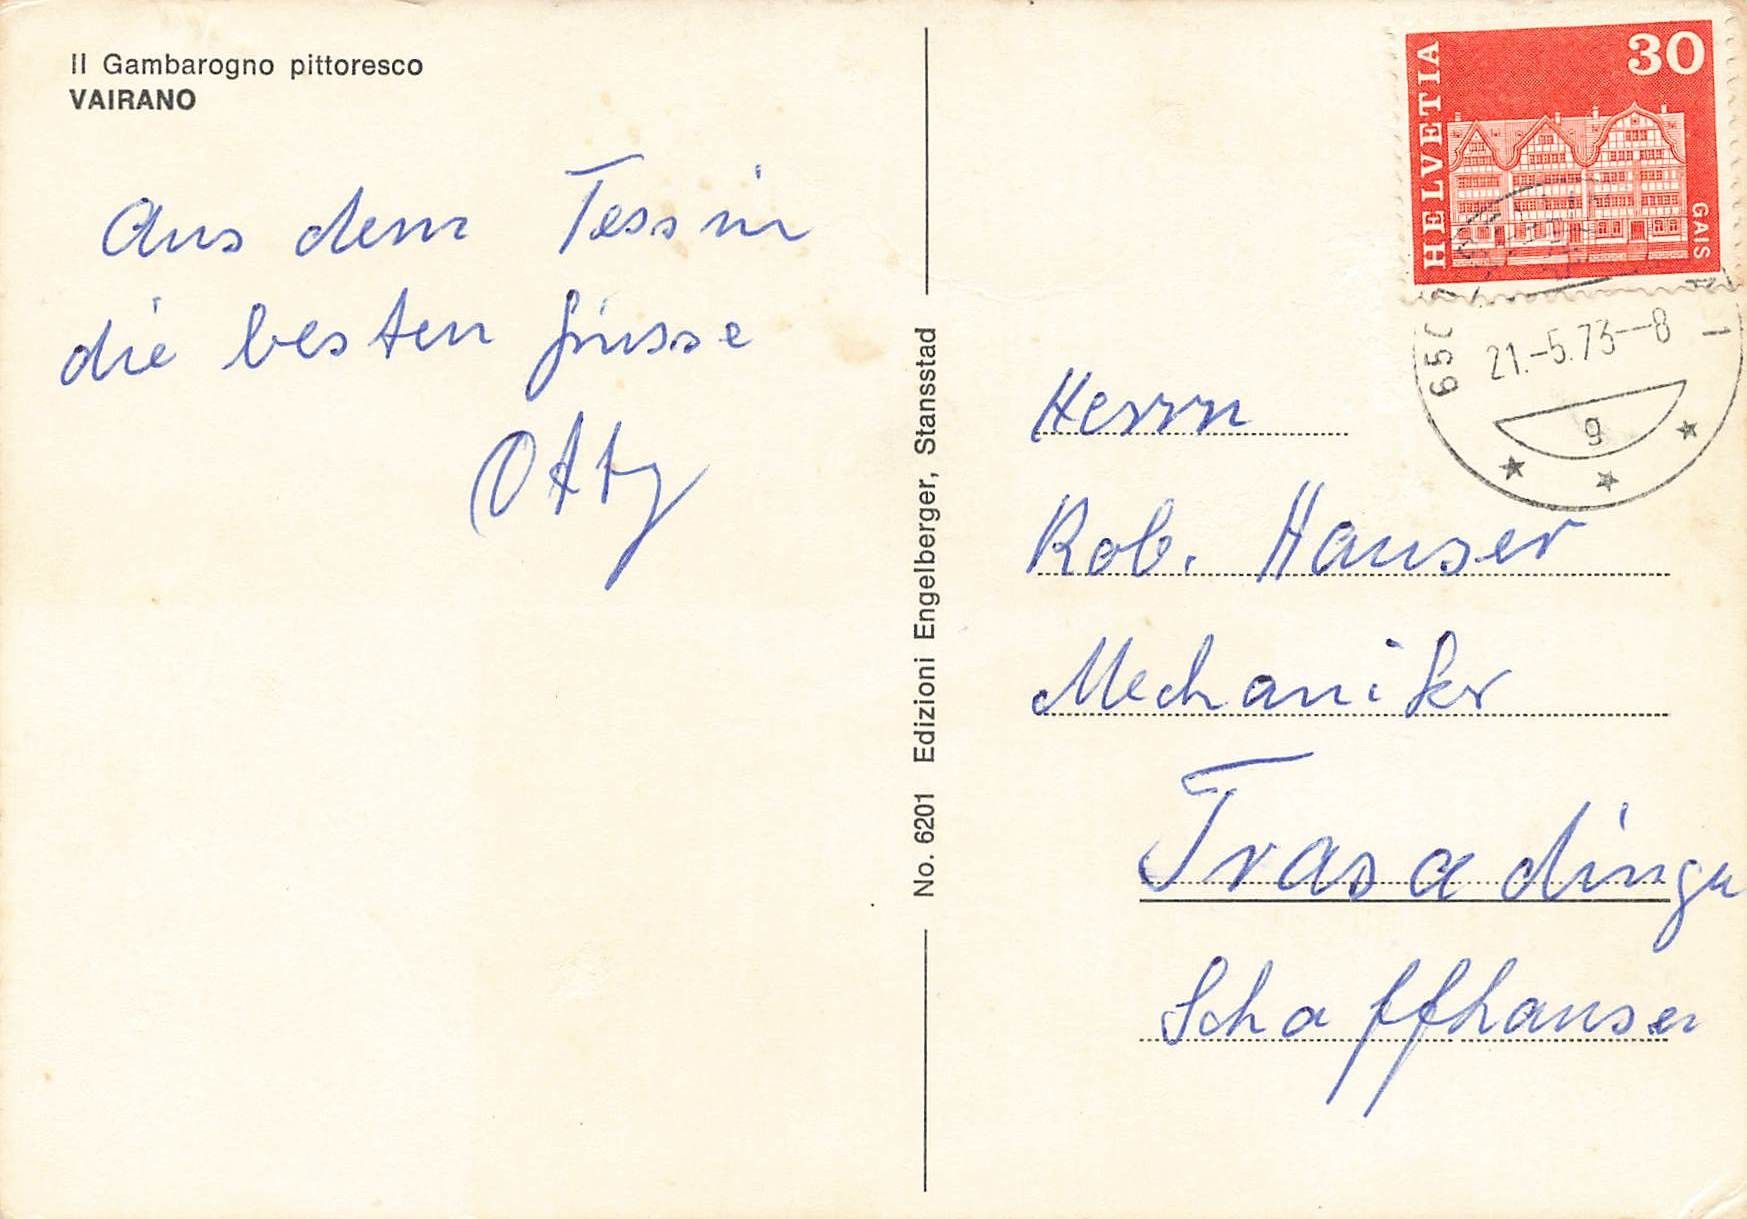 Il Gambarogno pittoresco
VAIRANO
Aus dem Tessin
die besten Grüsse
Otty
No. 6201 Edizioni Engelberger, Stansstad
HELVETIA
30
GAIS
650
21.-5.73--8
g
Herrn
Rob. Hauser
Mechaniker
Trasadingen
Schaffhausen